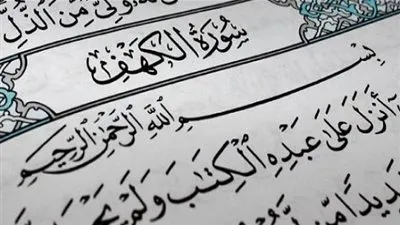 وَلِيٌّ مِّنَ ٱلذُّلِّ
سُورَةُ ٱلْكَهْفِ
بِسْمِ ٱللَّهِ ٱلرَّحْمَٰنِ ٱلرَّحِيمِ
أَنزَلَ عَلَىٰ عَبْدِهِ ٱلْكِتَٰبَ وَلَمْ